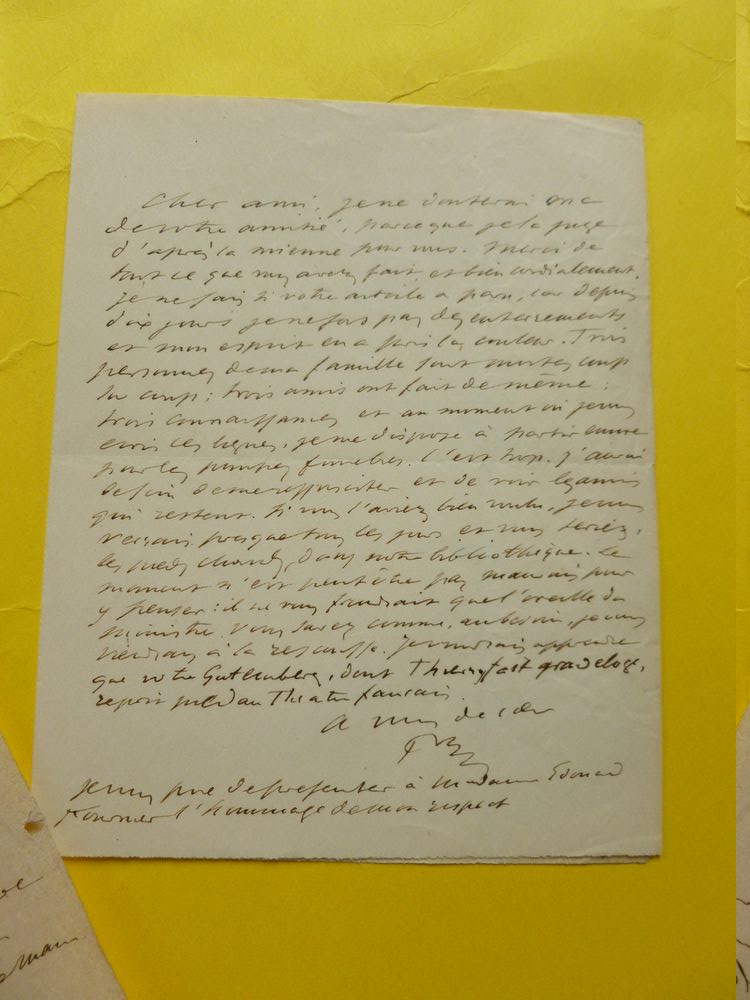 Cher ami, je ne douterai
de votre amitié, parceque je la juge
d'après la mienne pour vous. Merci de
tout ce que vous avez fait et bien cordialement.
je ne sais si votre article a paru, car depuis
dix jours je ne sors pas des enterrements
et mon esprit en a pris la couleur. Trois
personnes de ma famille sont mortes coup
sur coup ; trois amis ont fait de même ;
trois connaissances et au moment où je vous
écris ces lignes, je me dispose à partir encore
pour les pompes funèbres. C'est trop. J'aurai
besoin de me ressusciter et de voir les amis
qui restent. Si vous l'aviez bien voulu, je vous
verrais presque tous les jours et vous seriez,
les pieds chauds, dans notre bibliothèque. Le
moment n'est peut être pas mauvais pour
y penser : il ne vous faudrait que l'oreille du
ministre. Vous savez comme, au besoin, je vous
viendrais à la rescousse. Je voudrais apprendre
que votre Guttenberg, dont Thierry fait grand éloge,
reprit pied au Théatre français.
A vous de cœur
Je vous prie de présenter à Madame Edouard
Fournier l'hommage de mon respect